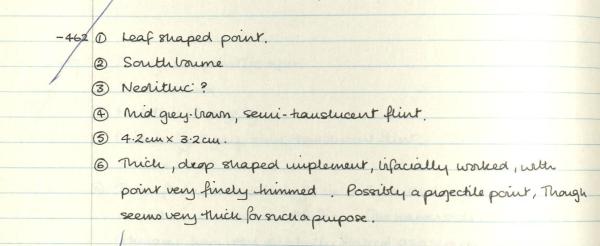 -462 ① Leaf shaped point.
② Southbourne
③ Neolithic ?
④ Mid grey-brown, semi-translucent flint.
⑤ 4.2cm x 3.2cm.
⑥ Thick, drop shaped implement, bifacially worked, with
point very finely trimmed. Possibly a projectile point, Though
seems very thick for such a purpose.